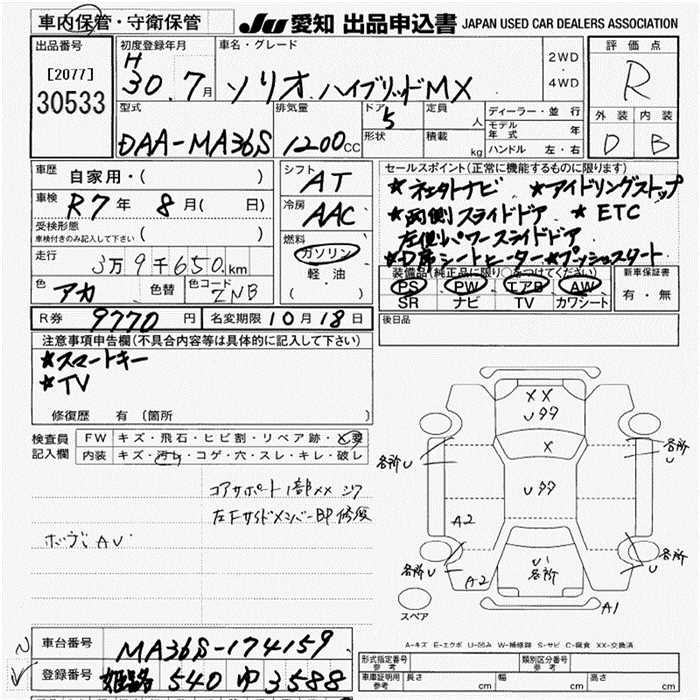 車内保管・守衛保管
JU 愛知 出品申込書 JAPAN USED CAR DEALERS ASSOCIATION
出品番号
[2077]
30533
初度登録年月
H
30.7月
車名・グレード
ソリオ ハイブリッドMX
2WD
・
4WD
評価点
R
外装 内装
D B
型式
DAA-MA36S
排気量
1200cc
ドア
5
形状
定員
人
積載
kg
ディーラー・並行
モデル年式 年
ハンドル 左・右
車歴
自家用・( )
車検
R7年 8月( 日)
受検形態
車検付きのみ記入して下さい ( )
走行
3万9千650km
色
アカ
色替
色コード
ZNB
シフト
AT
冷房
AAC
燃料
ガソリン
軽油
( )
セールスポイント(正常に機能するものに限ります)
★社外ナビ ★アイドリングストップ
★両側スライドドア ★ETC
左側パワースライドドア
★D席シートヒーター★プッシュスタート
装備品(純正品に限り○をつけてください)
PS PW エアB AW
SR ナビ TV カワシート
新車保証書
有・無
R券 9770円
名変期限 10月18日
後日品
注意事項申告欄(不具合内容等は具体的に記入して下さい)
★スマートキー
★TV
修復歴 有(箇所 )
検査員記入欄
FW キズ・飛石・ヒビ割・リペア跡・×要
内装 キズ・汚レ・コゲ・穴・スレ・キレ・破レ
コアサポート1部××ジワ
左FサイドメンバーBP修復
XX
Uタタ
X
Uタタ
各所U
各所U
A2
A2
各所U
各所U
各所
A1
スペア
A-キズ E-エクボ U-凹み W-補修跡 S-サビ C-腐食 XX-交換済
車台番号 MA36S-174159
登録番号 姫路 540 ゆ 3588
型式指定番号 参考
類別区分番号 参考
車庫証明用 参考
長さ cm
幅 cm
高さ cm